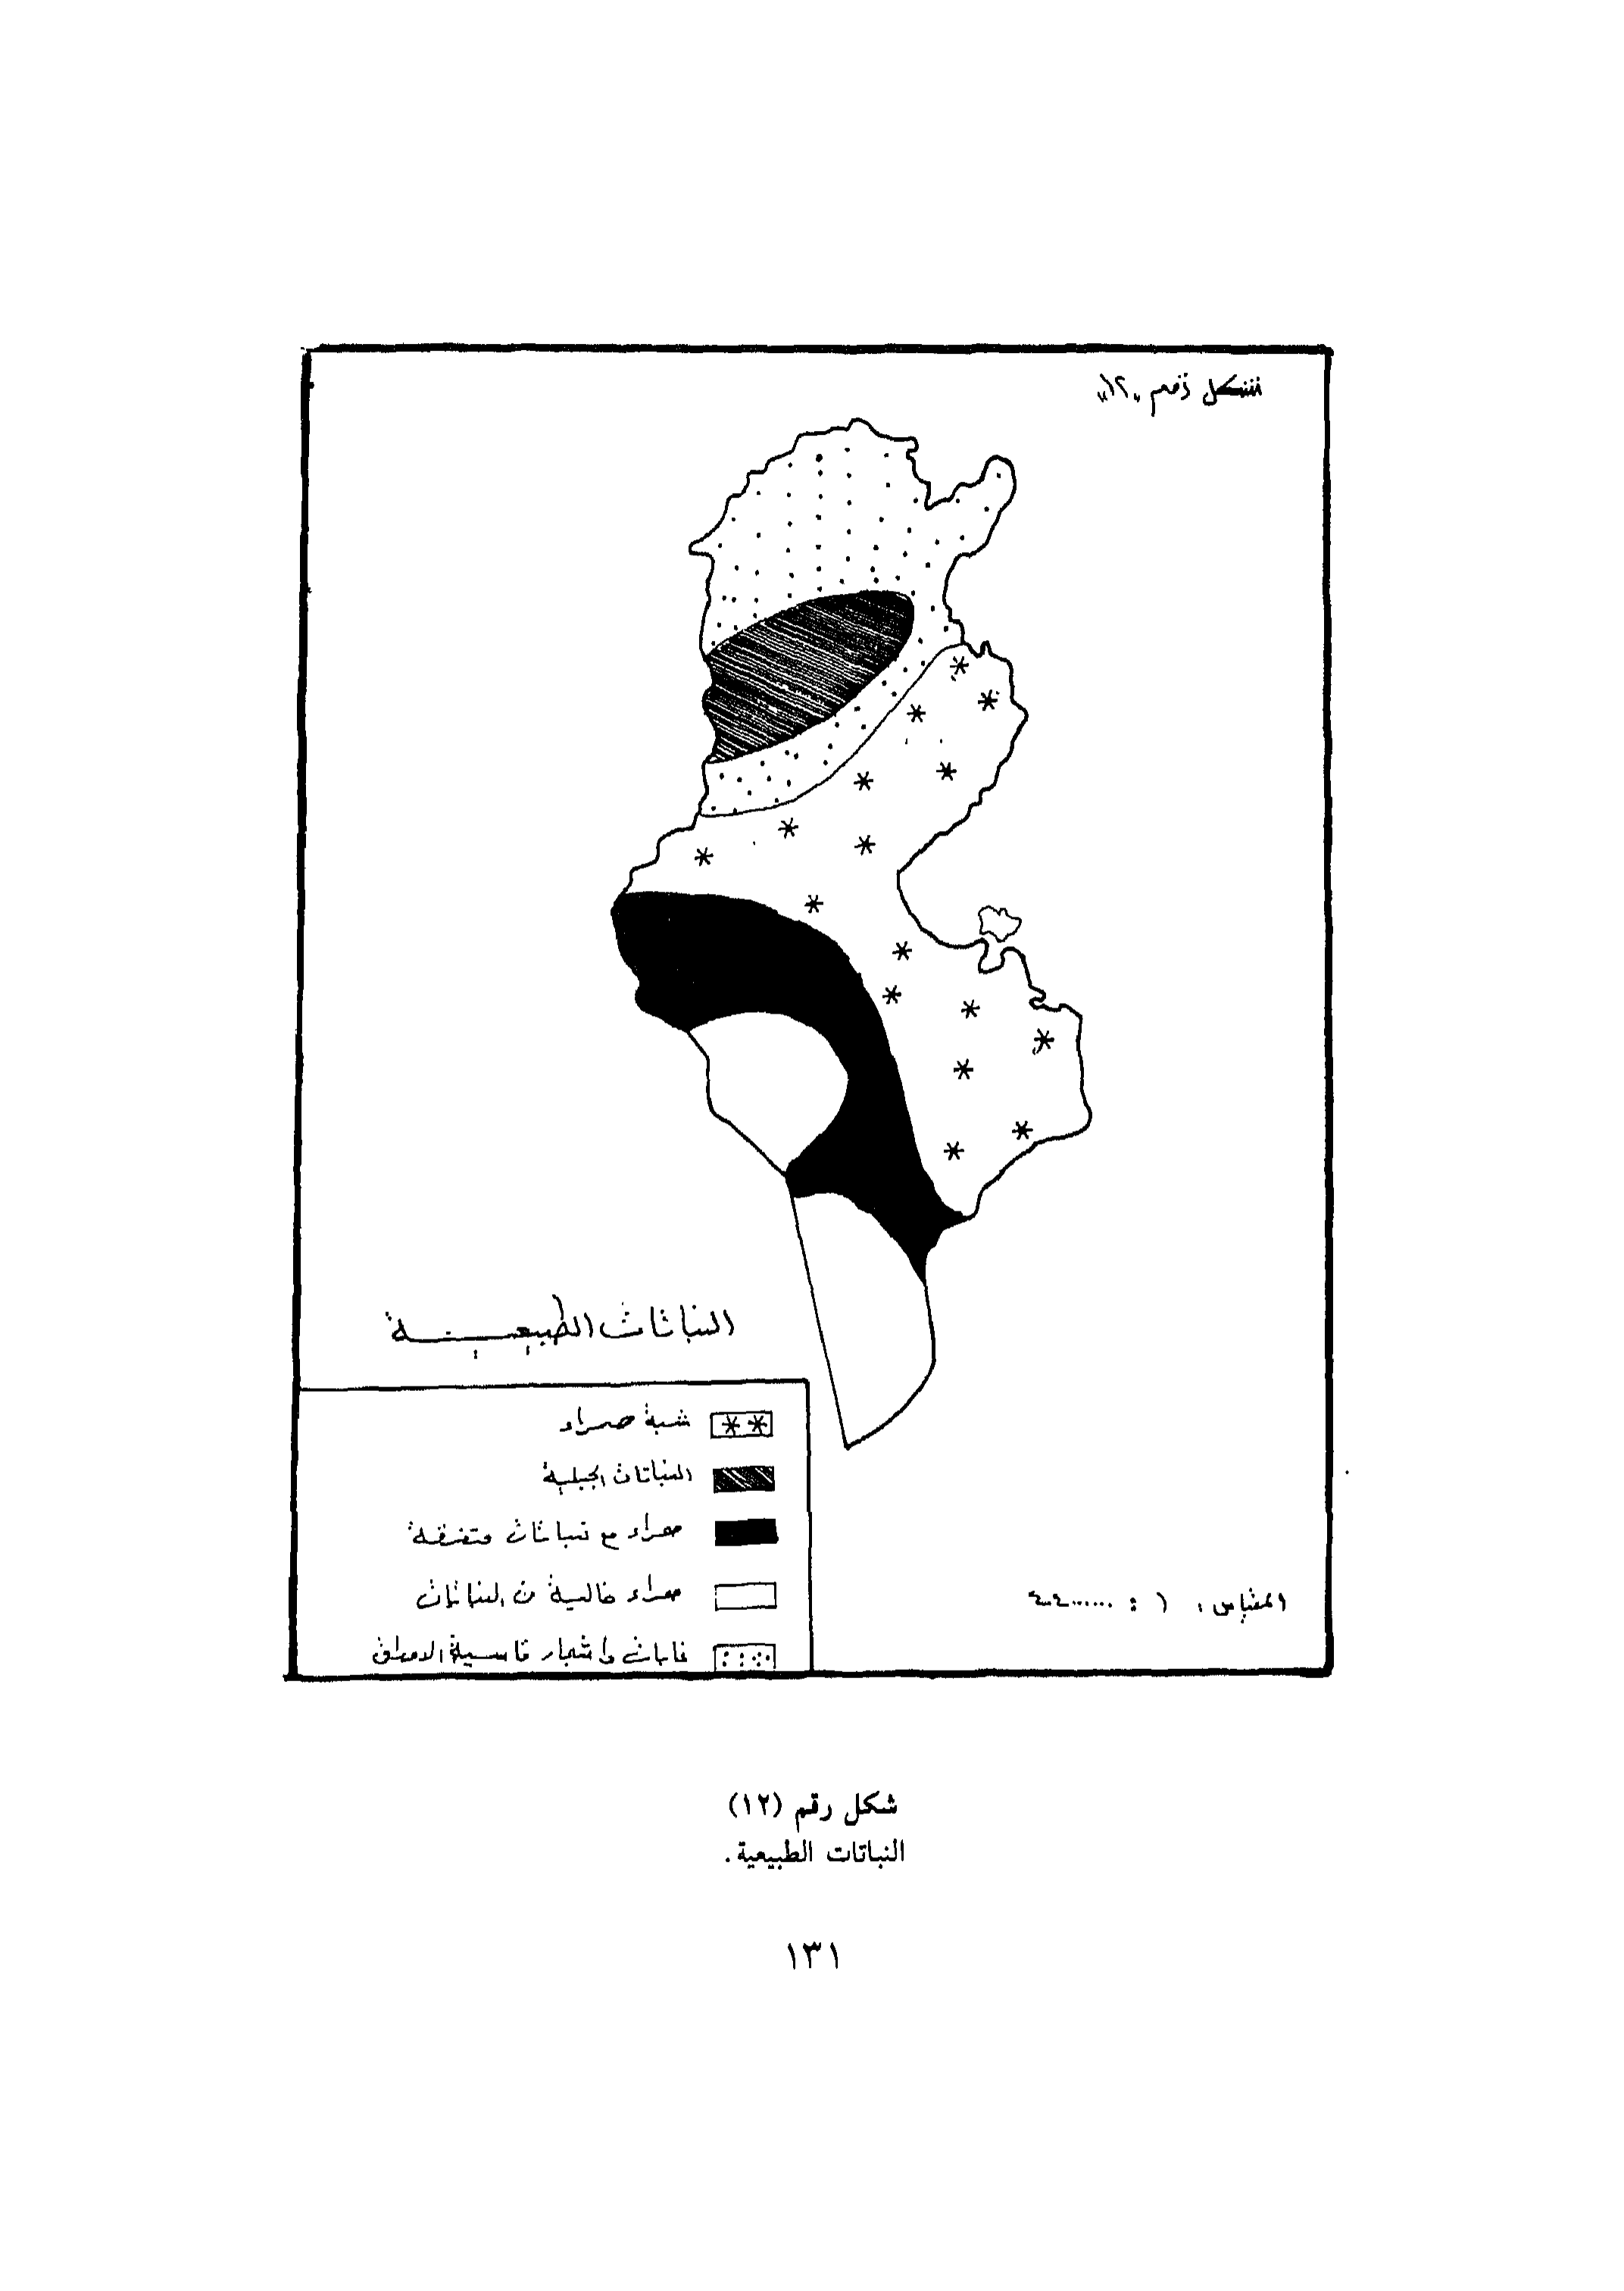 شكل رقم "١٢"
النباتات الطبيعية
شبة صحراء
النباتات الجبلية
صحراء مع نباتات متفرقة
صحراء خالية من النباتات
غابات واشجار قاسية الاوراق
المقياس : ١ :
شكل رقم (١٢)
النباتات الطبيعية.
١٣١